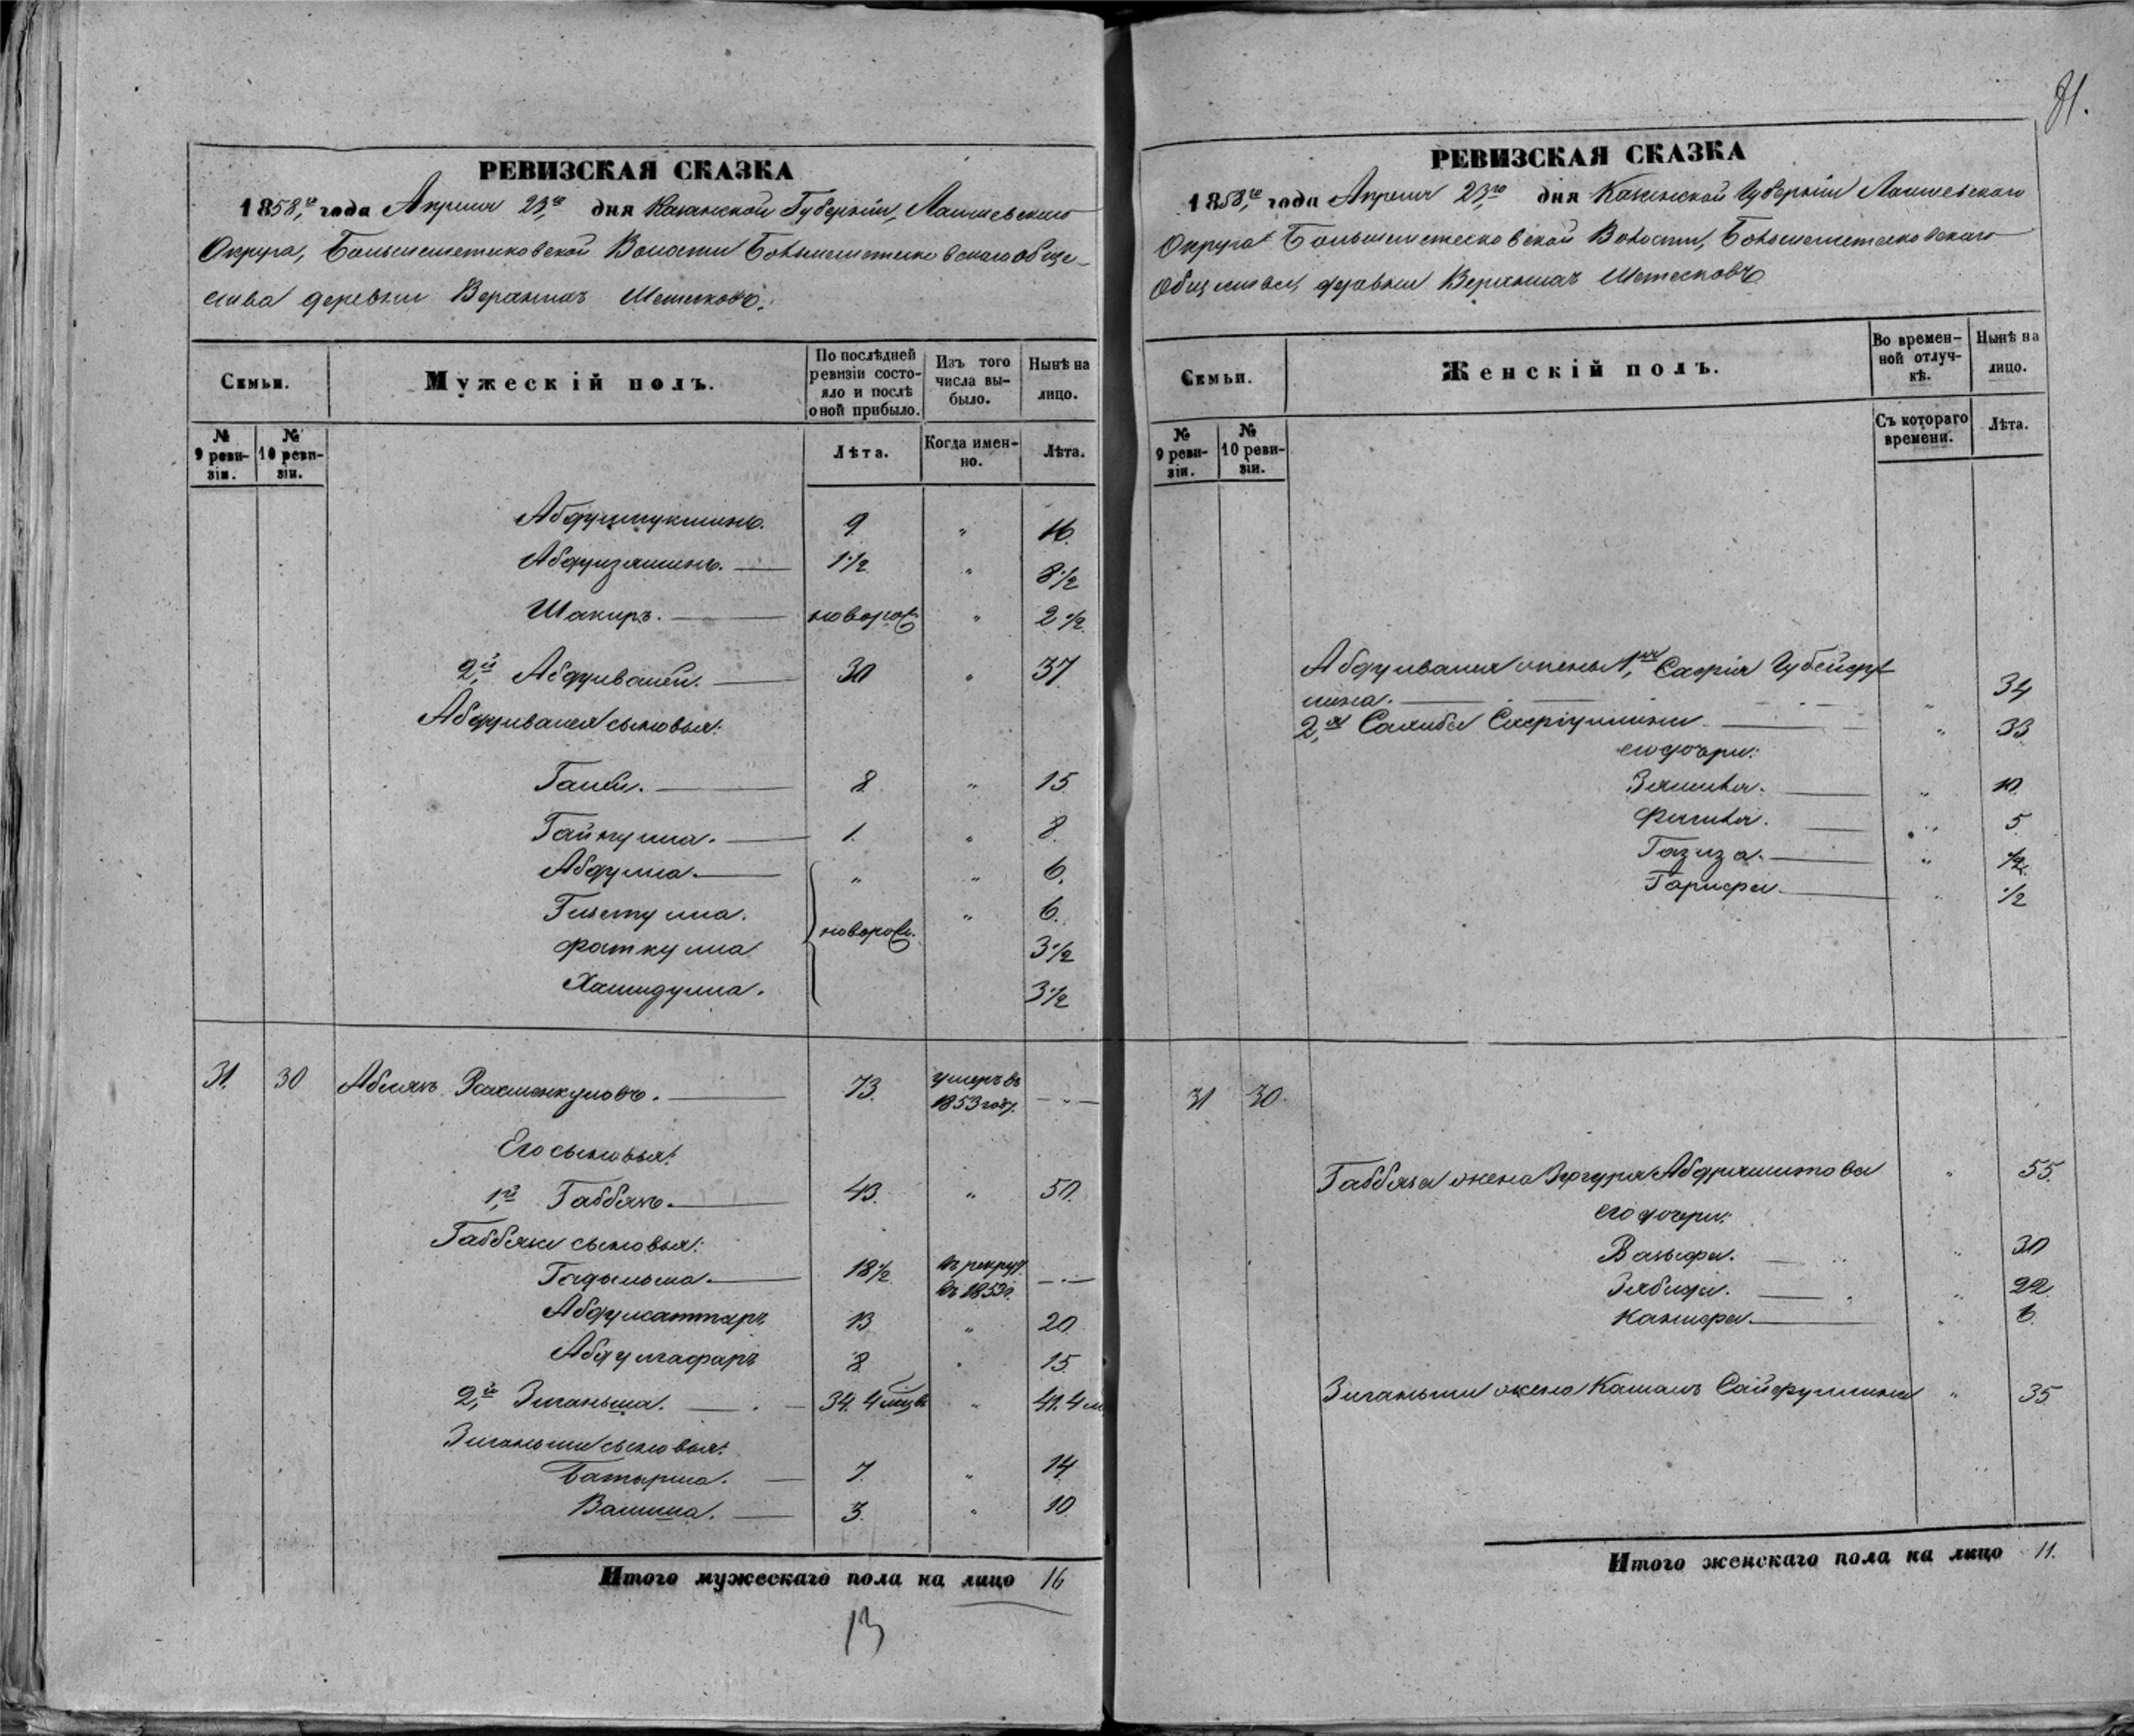 81.
РЕВИЗСКАЯ СКАЗКА
1858,го года Апреля 23,го дня Казанской Губерніи, Лаишевского
Округа, Большеметесковской Волости Большеметесковскаго обще-
ства деревни Верхнихъ Метесковъ.
Семьи.
Мужескій полъ.
По послѣдней ревизіи состояло и послѣ оной прибыло.
Изъ того числа выбыло.
Нынѣ на лицо.
№ 9 ревизіи.
№ 10 ревизіи.
Лѣта.
Когда именно.
Лѣта.
Абдулмукминъ. 9. " 16.
Абдулзялилъ. 1 1/2 " 8 1/2
Шакиръ. новорож " 2 1/2
2,й Абдулвалей. 30 " 37
Абдулвалея сыновья:
Галей. 8. " 15
Гайнулла. 1. " 8.
Абдулла. " " 6.
новорож.
Гизетулла. " 6.
Фаткулла 3 1/2
Хамидулла. 3 1/2
31. 30 Аблязъ Рахманкуловъ. 73. умеръ въ 1853 году. — " —
Его сыновья:
1,й Габбязъ. 43. " 50.
Габбяза сыновья:
Гадильша. 18 1/2 въ рекрут. въ 1853г. — " —
Абдулсаттаръ 13 " 20
Абдулгафаръ 8. " 15
2,й Зиганьша. 34. 4 мцв " 41. 4 м.
Зиганьши сыновья:
Батырша. 7. " 14
Валиша. 3. " 10
Итого мужескаго пола на лицо 16
13
РЕВИЗСКАЯ СКАЗКА
1858,го года Апреля 23,го дня Казанской Губерніи Лаишевскаго
Округа Большеметесковской Волости, Большеметесковскаго
Общества, деревни Верхнихъ Метесковъ
Семьи.
Женскій полъ.
Во временной отлучкѣ.
Нынѣ на лицо.
№ 9 ревизіи.
№ 10 ревизіи.
Съ котораго времени.
Лѣта.
Абдулвалея жены 1,я Сафія Губейдул
лина. " 34
2,я Салиба Сафіуллина " 33
его дочри:
Зялила. " 10.
Фазила. " 5
Газиза. " 1/2.
Гарифа. " 1/2
31 30.
Габбяза жена Зюгуря Абдряшитова " 55.
его дочери:
Вазифа. " 30
Зябифа. " 22.
Нагифа. " 6.
Зиганьши жена Камаль Сайфуллина " 35
Итого женскаго пола на лицо 11.